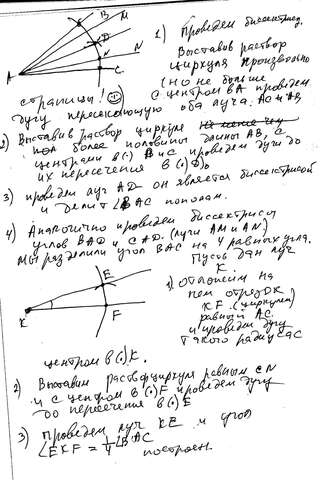 1) Проведем биссектрису.
Выставив раствор
циркуля произвольно
(но не больше
страницы! с центром в A проведем
дугу пересекающую оба луча. AC и AB
2) Выставив раствор циркуля
более половины длины AB, с
центрами в (·) B и C проведем дуги до
их пересечения в (·) D.
3) проведем луч AD он является биссектрисой
и делит ∠BAC пополам.
4) Аналогично проведем биссектрисы
углов BAD и CAD. (лучи AM и AN)
Мы разделили угол BAC на 4 равных угла.
Пусть дан луч
K
1) отложим на
нем отрезок
KF (циркулем)
равный AC.
и проведем дугу
такого радиуса с
центром в (·) K.
2) Выставим раствор циркуля равным CN
и с центром в (·) F проведем дугу
до пересечения в (·) E
3) Проведем луч KE и угол
∠EKF = 1/4 ∠BAC
построен.
A
B
M
D
N
C
K
E
F